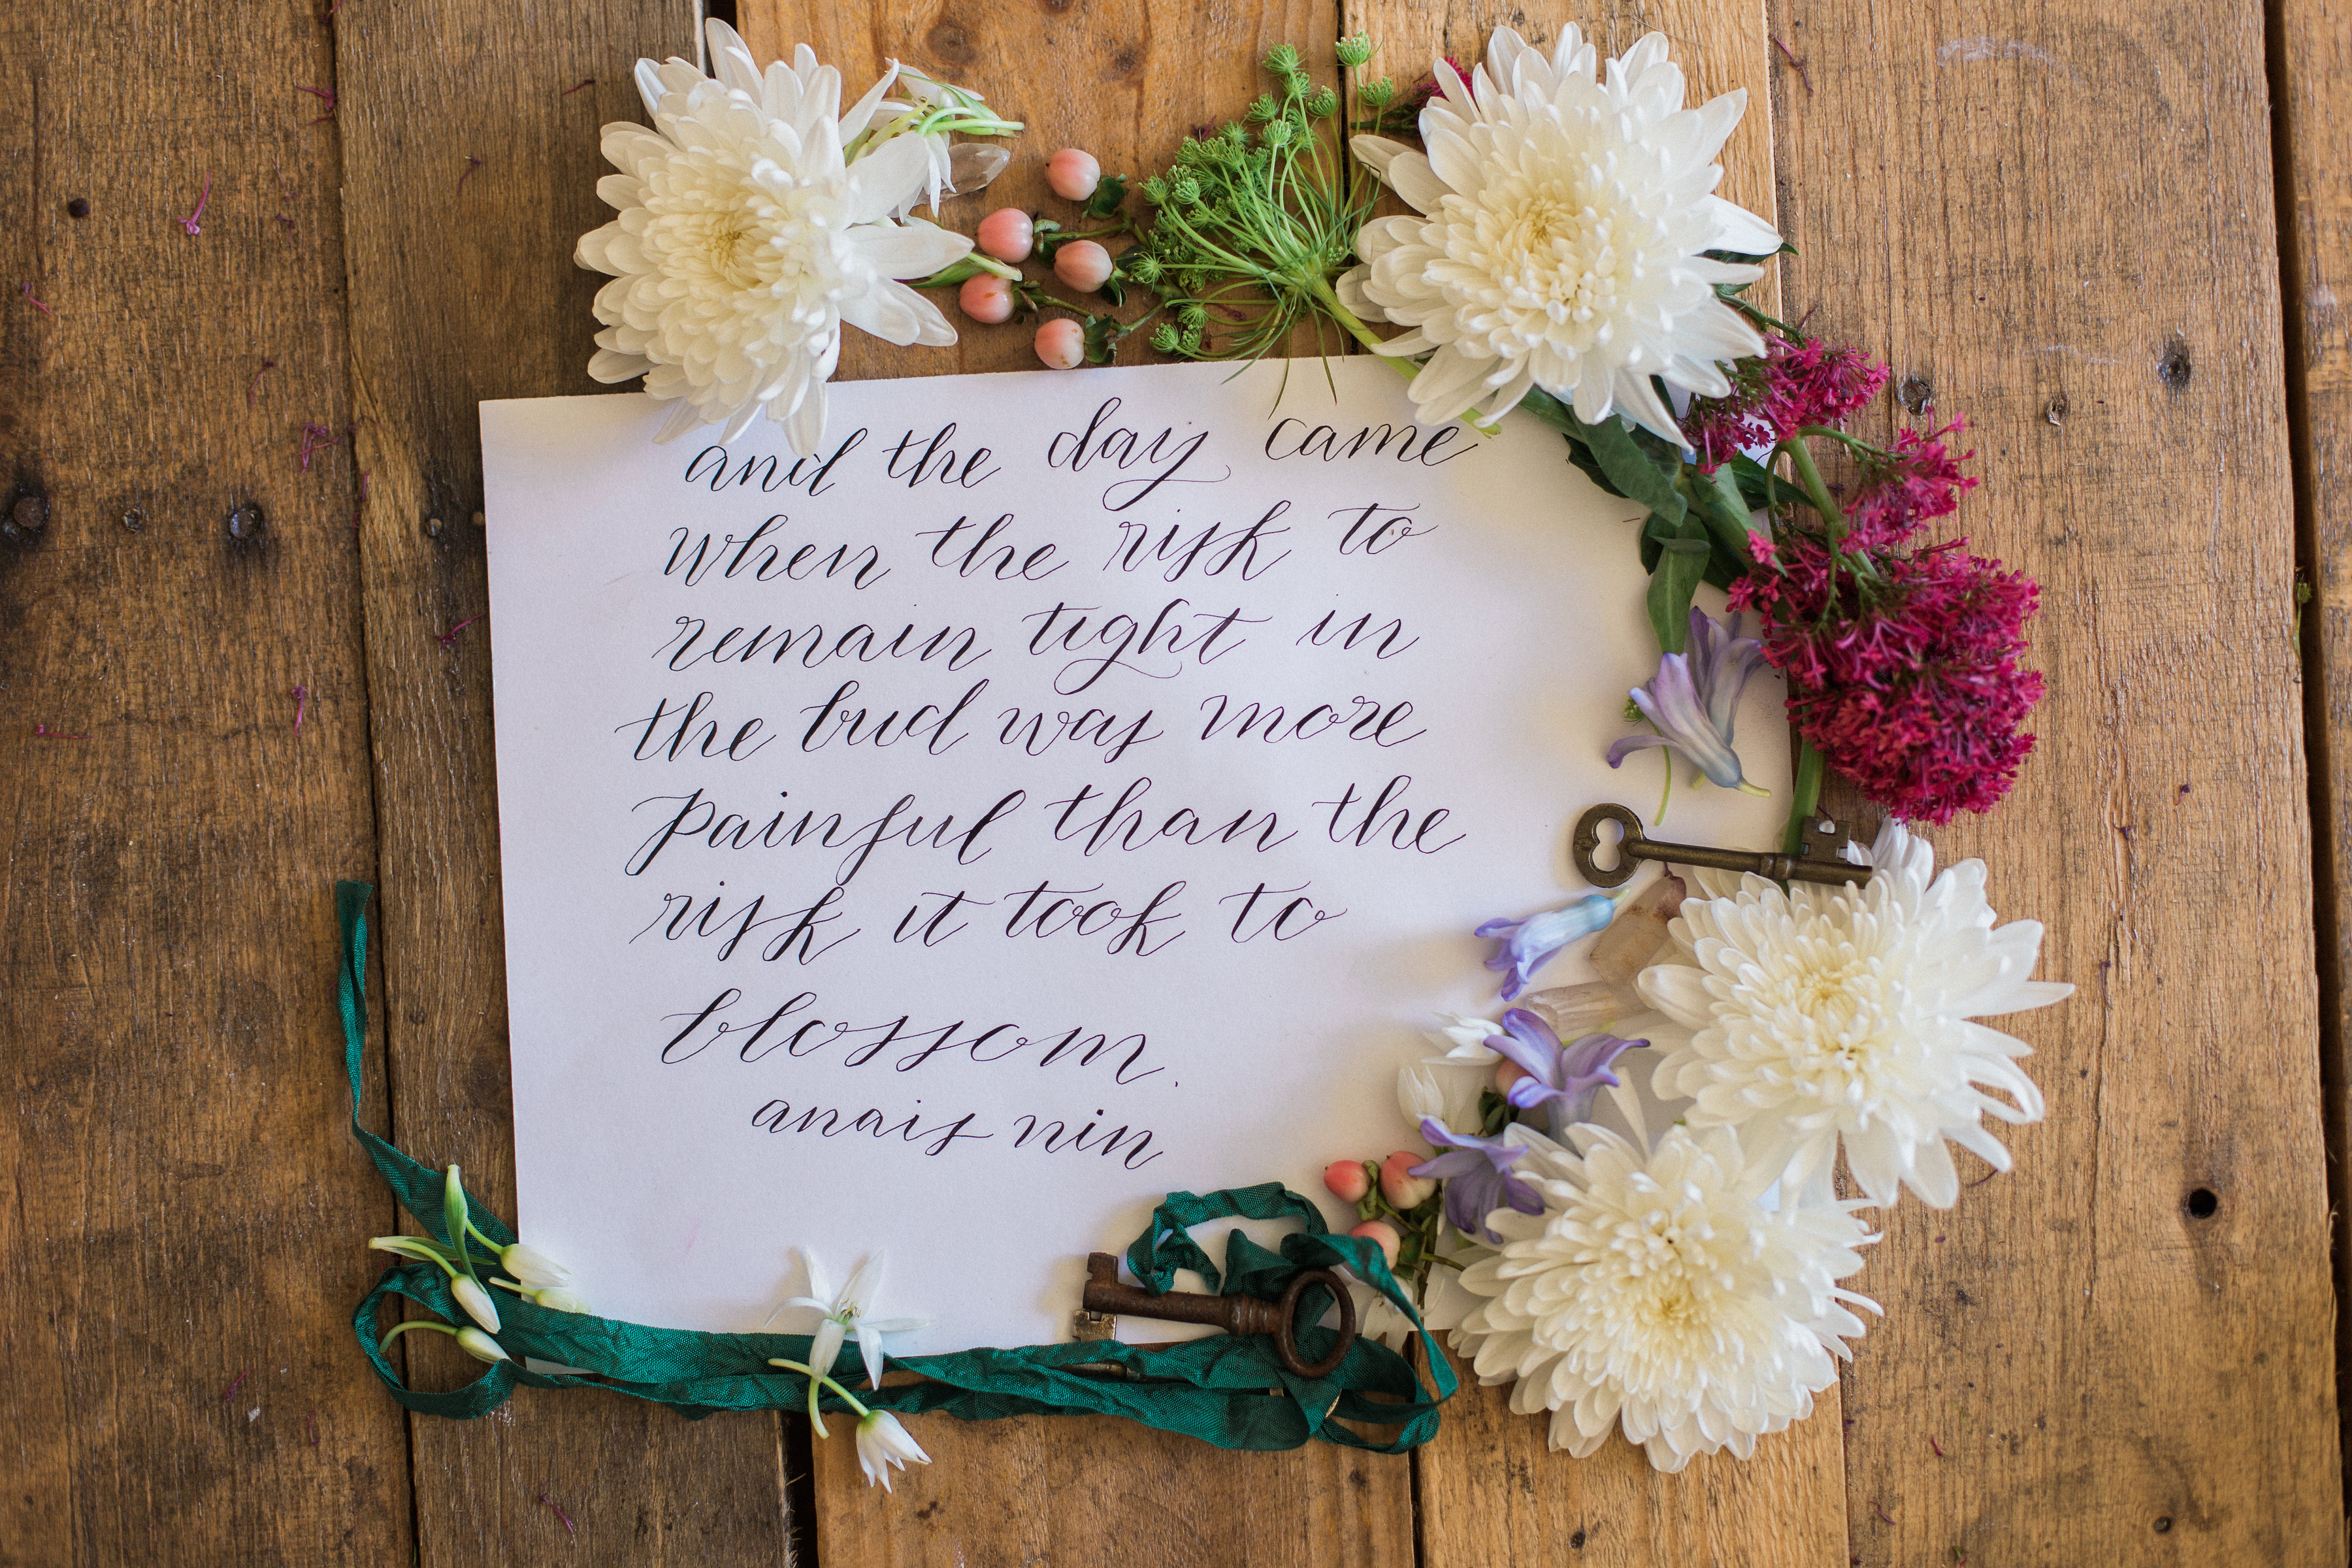 and the day came
when the risk to
remain tight in
the bud was more
painful than the
risk it took to
blossom.
anais nin